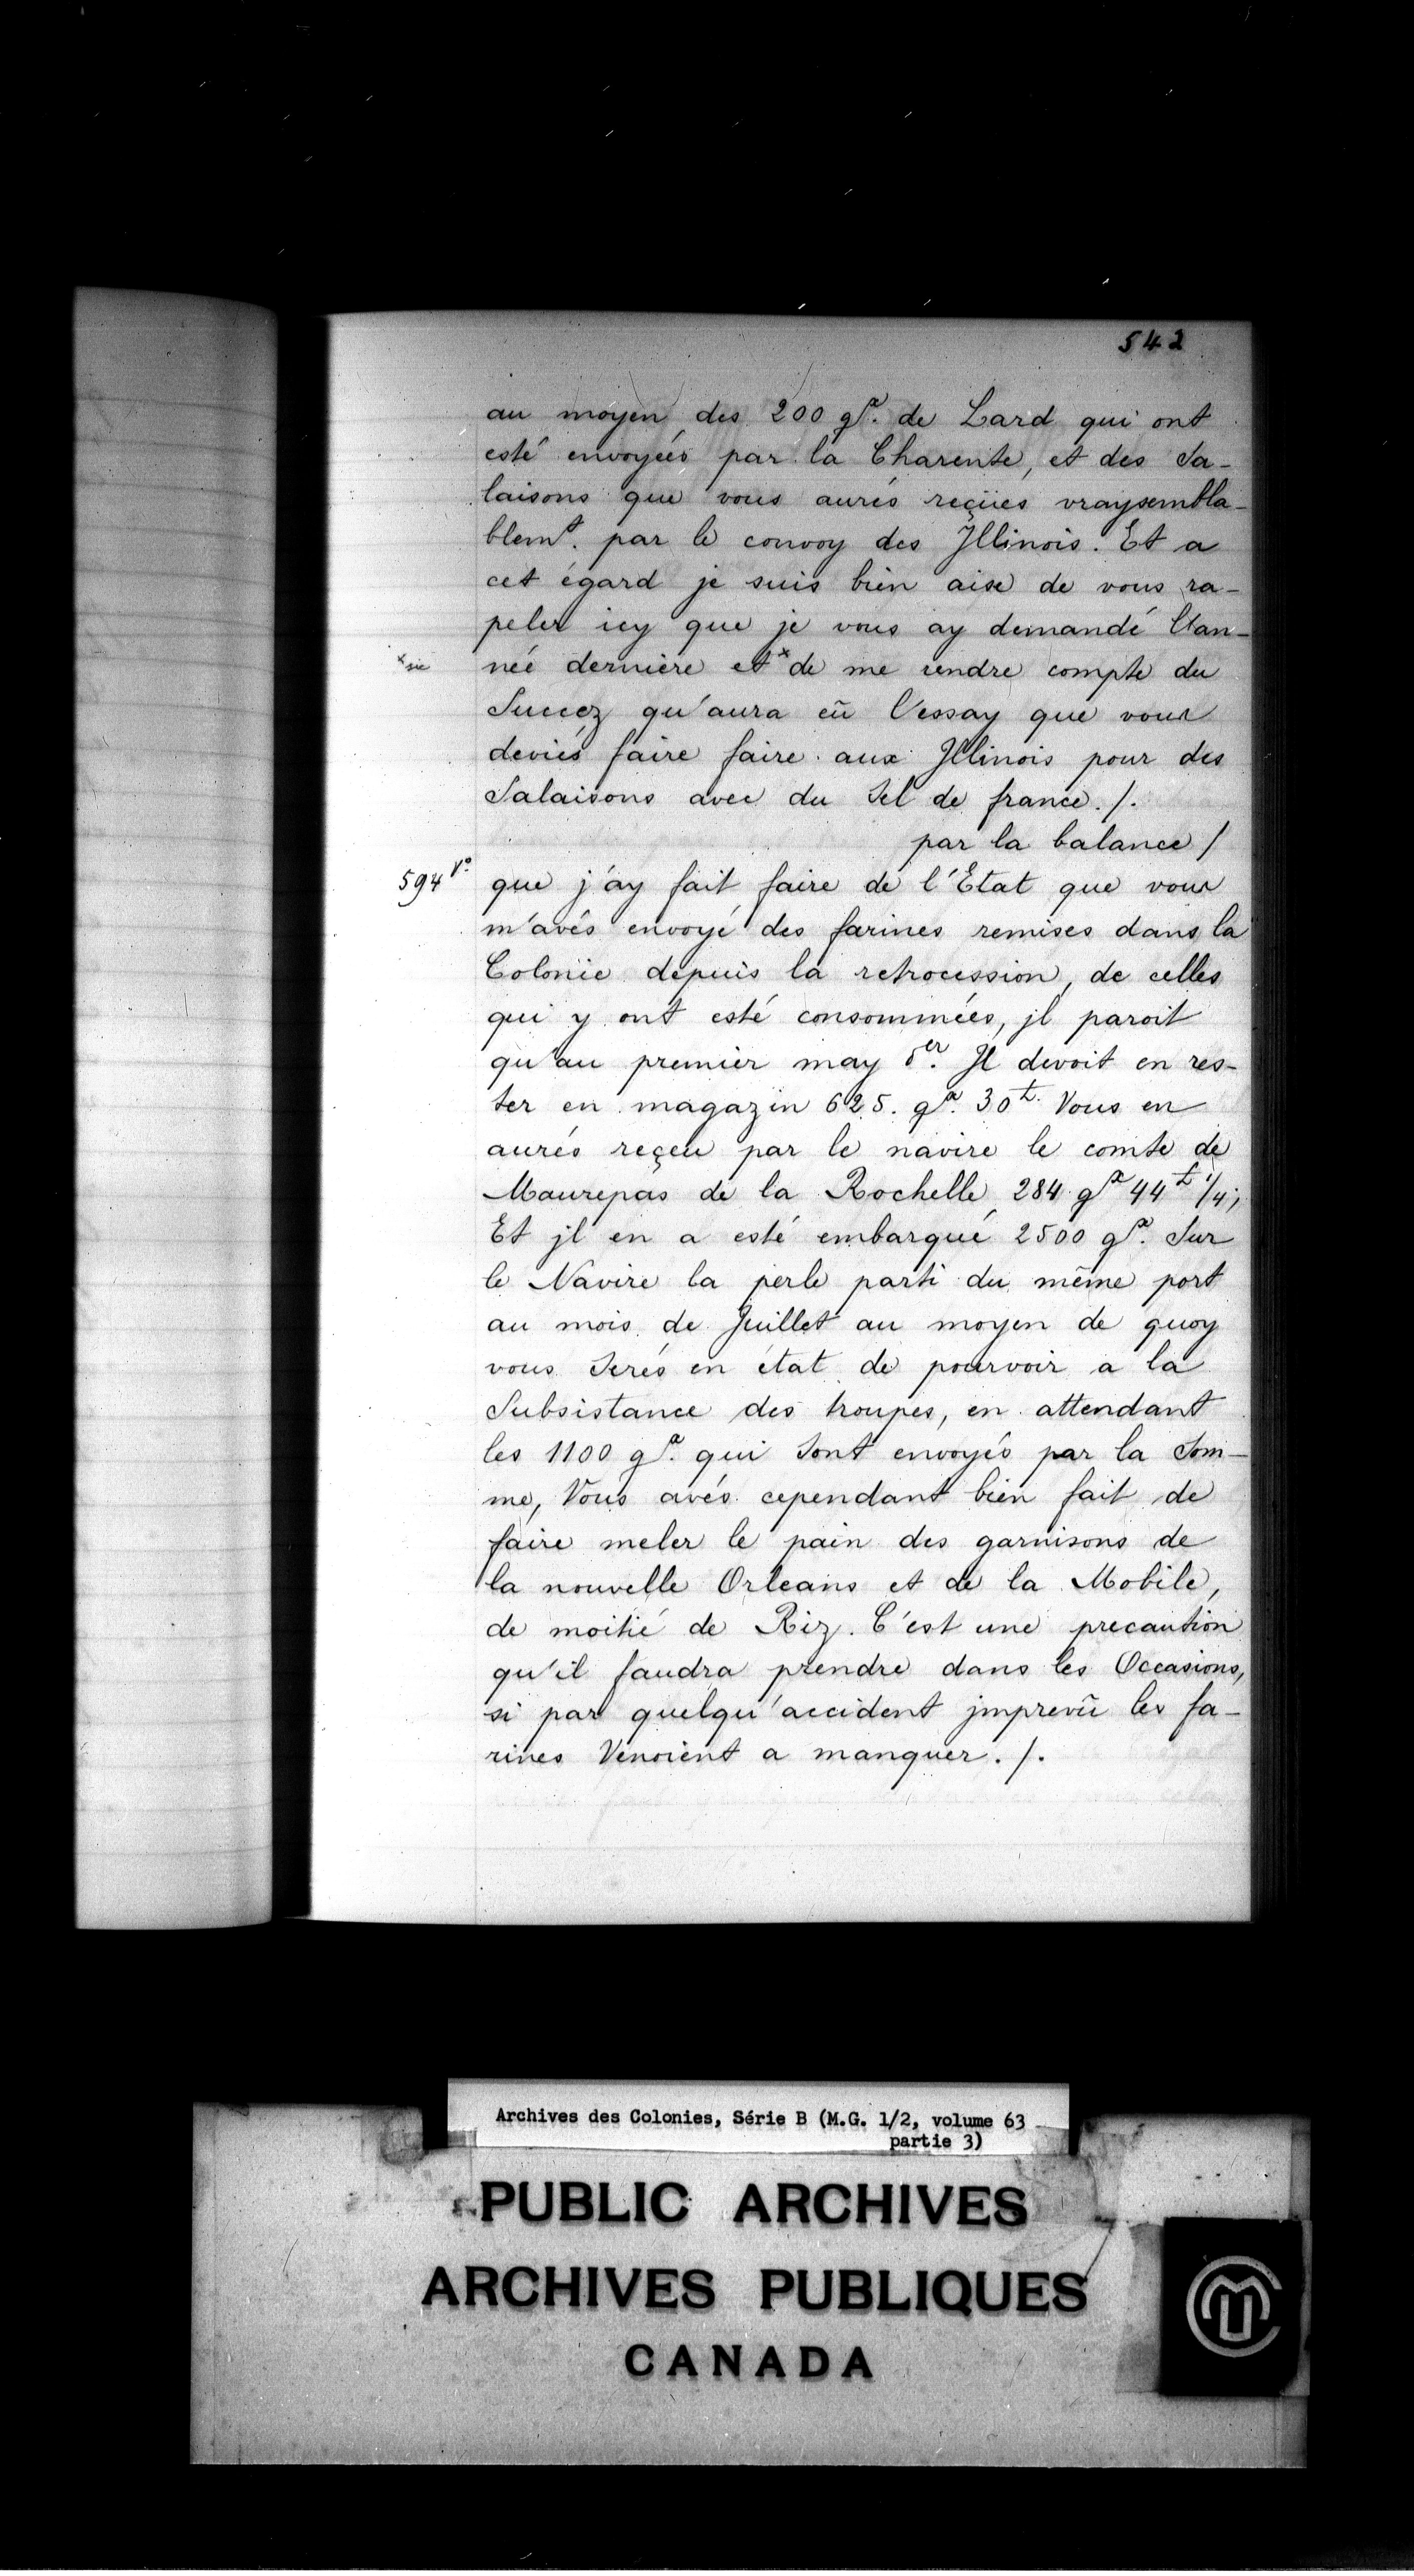 542
au moyen des 200 qx. de Lard qui ont
esté envoyées par la Charente, et des Sa-
laisons que vous aurés reçües vraysembla-
blemt. par le convoy des Jllinois. Et a
cet égard je suis bien aise de vous ra-
peler icy que je vous ay demandé l'an-
x sic née dernière et x de me rendre compte du
Succez qu'aura eü l'essay que vous
deviés faire faire aux Jllinois pour des
Salaisons avec du Sel de france./.
par la balance /
594 Vo. que j'ay fait faire de l'Etat que vous
m'avés envoyé des farines remises dans la
Colonie depuis la retrocession, de celles
qui y ont esté consommées, jl paroit
qu'au premier may der. Jl devoit en res-
ter en magazin 625. qx. 30 ₶. Vous en
aurés reçeu par le navire le comte de
Maurepas de la Rochelle 284 qx 44 ₶ 1/4;
Et jl en a esté embarqué 2500 qx. Sur
le Navire la perle parti du même port
au mois de Juillet au moyen de quoy
vous Serés en état de pourvoir a la
Subsistance des troupes, en attendant
les 1100 qx. qui Sont envoyés par la Som-
me, Vous avés cependant bien fait de
faire meler le pain des garnisons de
la nouvelle Orleans et de la Mobile,
de moitié de Riz. C'est une precaution
qu'il faudra prendre dans les Occasions,
si par quelqu'accident jmprevü les fa-
rines Venoient a manquer./.
Archives des Colonies, Série B (M.G. 1/2, volume 63
partie 3)
PUBLIC ARCHIVES
ARCHIVES PUBLIQUES
CANADA